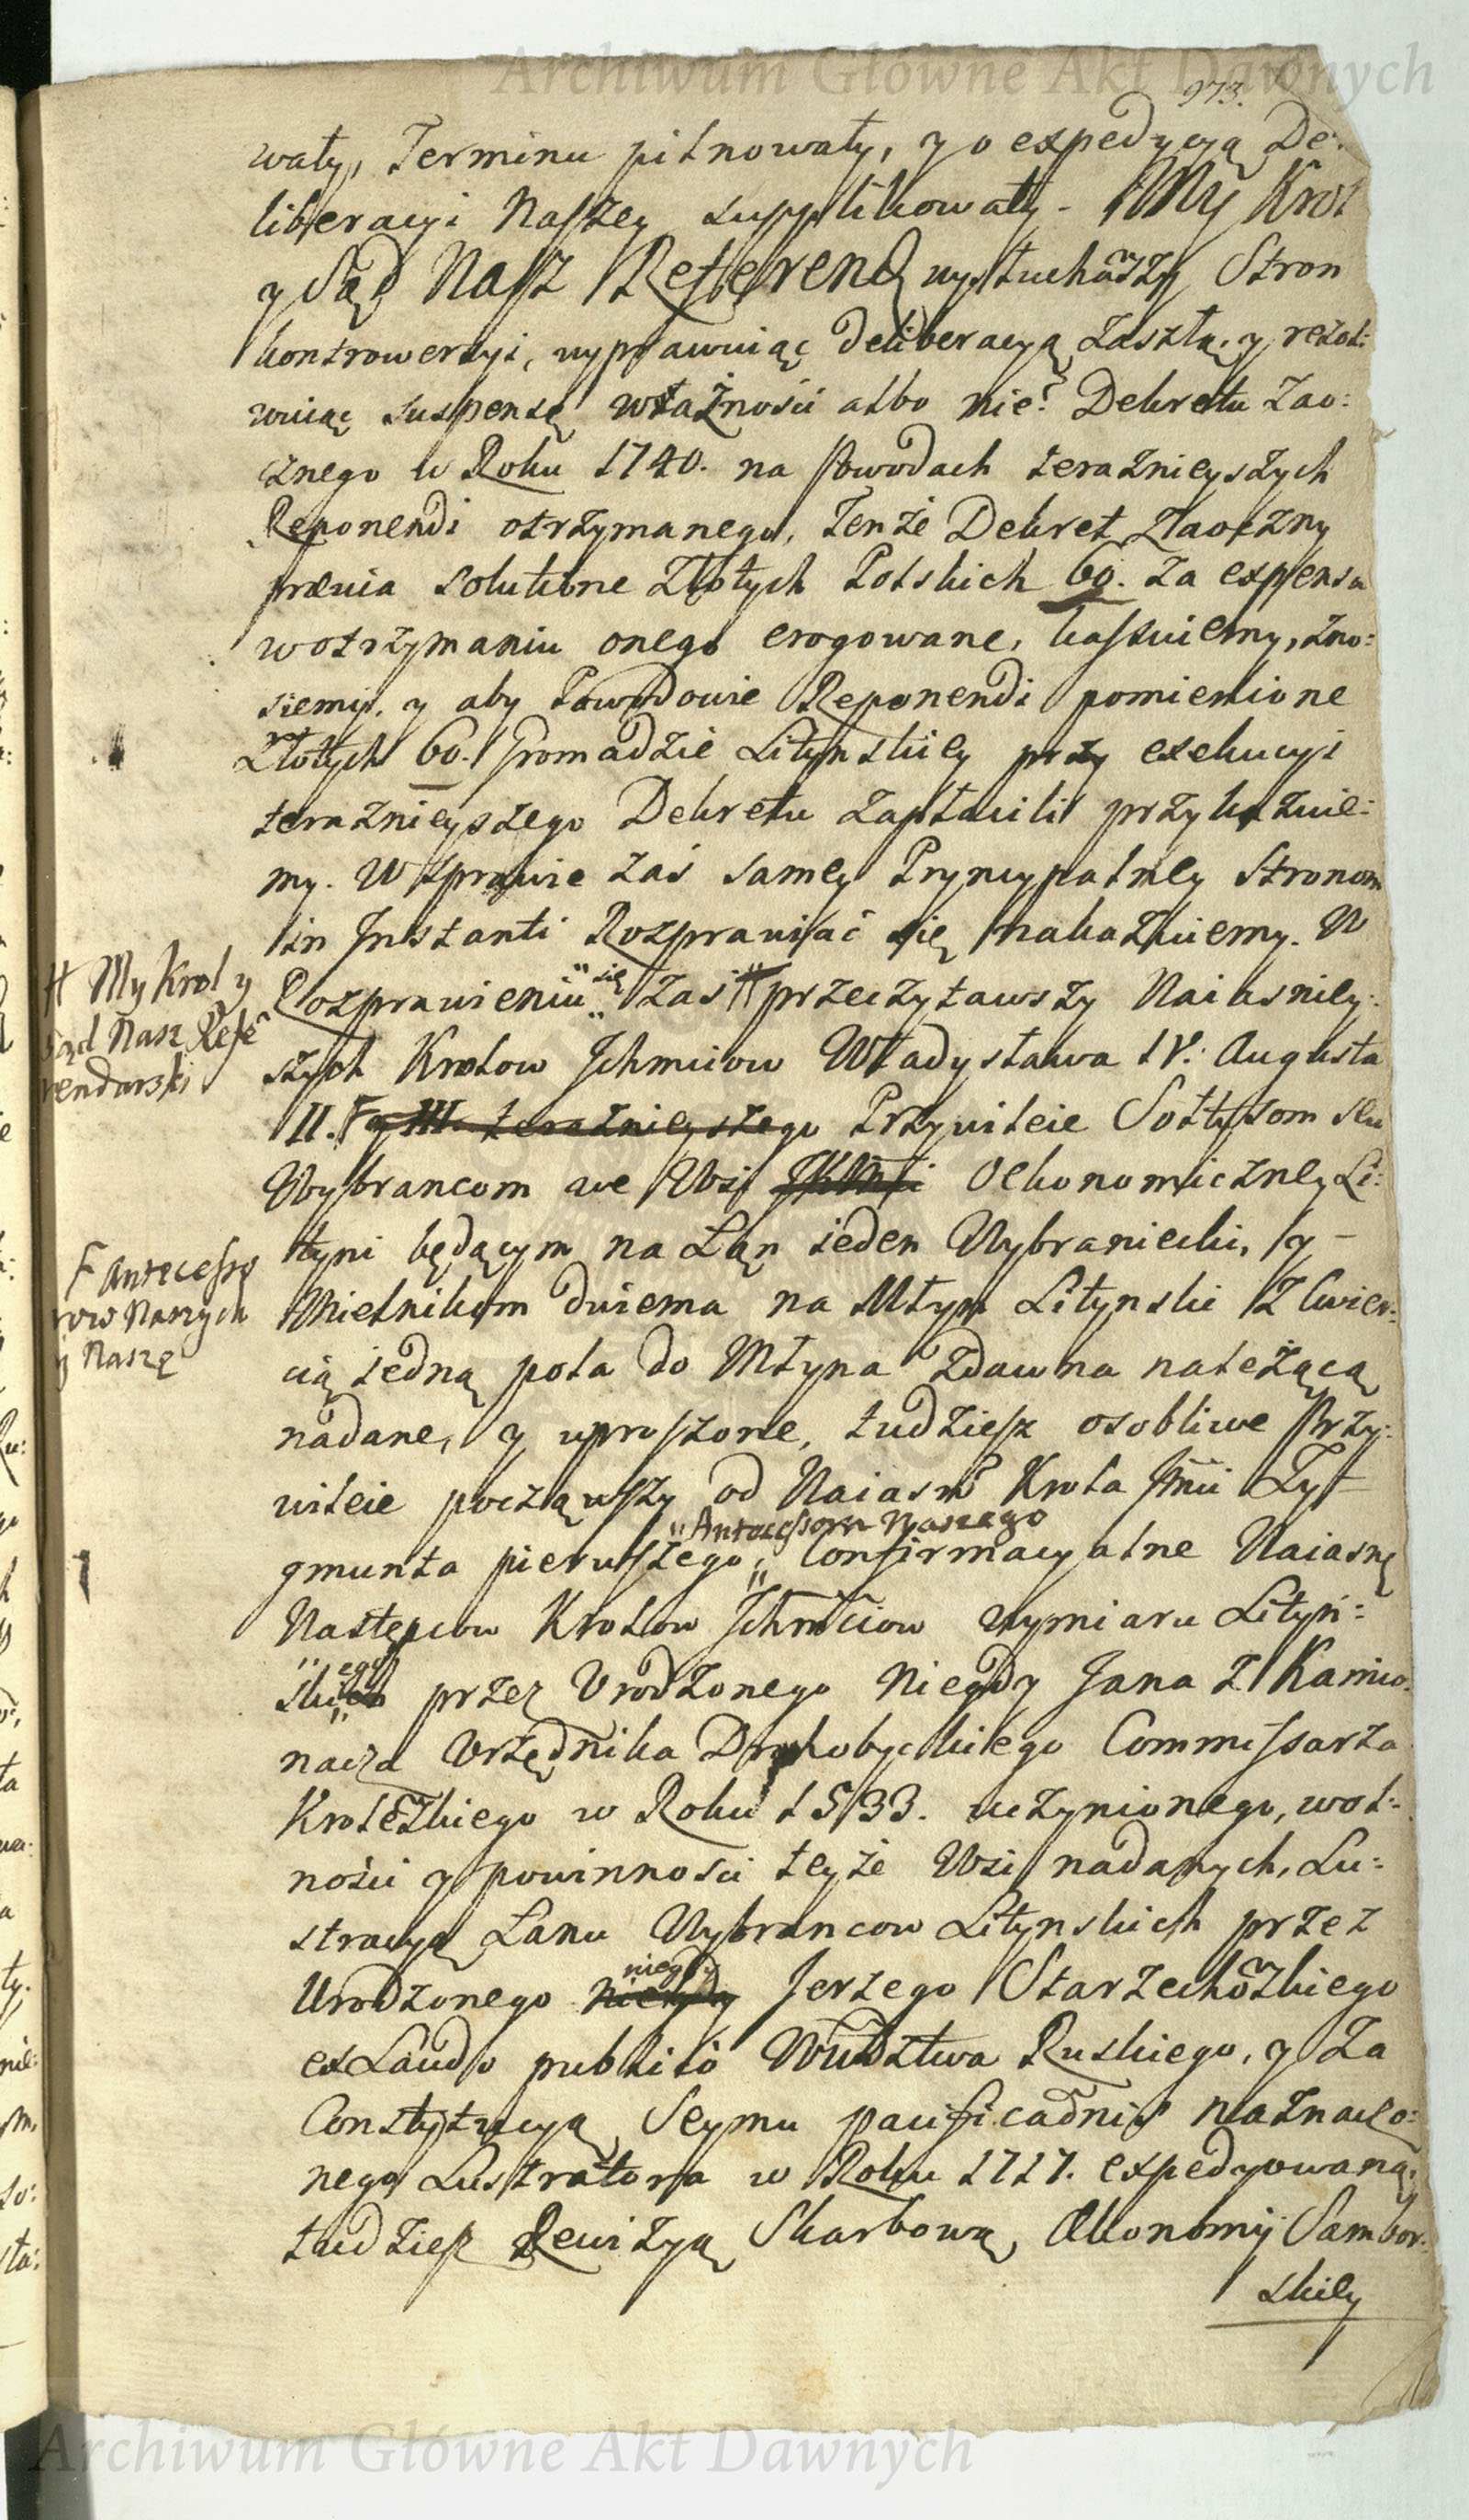 Archiwum Główne Akt Dawnych
973.
wały, Terminu pilnowały, y o expedycyą De:
liberacyi Naszey supplikowały - My Krol
y Sąd Nasz Referend wysłuchawszy Stron
kontrowersyi, uprawuiąc deliberacyą zaszłą, y rezol:
wuiąc suspensę ważności albo nie? Dekretu Zao:
cznego w Roku 1740. na Powodach teraznieyszych
Reponendi otrzymanego, Tenże Dekret Zaoczny
prævia solutione Złotych Polskich 60. za expensa
w otrzymaniu onego erogowane, kassuiemy, zno:
siemy, y aby Powodowie Reponendi pomienione
Złotych 60. Gromadzie Litynskiey przy exekucyi
teraznieyszego Dekretu zapłacili przykazuie:
my. W sprawie zaś samey Pryncypalney Stronom
in Instanti Rozprawiać się nakazuiemy. W
Rozprawieniu się zaś # przeczytawszy Naiasniey:
# My Krol y
Sąd Nasz Refe
rendarski
szych Krolow Ichmciow Władysława IV. Augusta
II. F y III. teraznieyszego Przywileie Sołtysom seu
Wybrancom we Wsi Oekonomiczney Li:
tyni będącym na Łan ieden Wybraniecki, y -
F Antecesso
row Naszych
y Naszę
Mielnikom dwiema na Młyn Litynski z cwier:
cią iedną pola do Młyna zdawna należącą
nadane, y uproszone, tudziesz osobliwe Przy:
wileie począwszy od Naiasn Krola Jmci Zy=
Antecessora Naszego
gmunta pierwszego, Confirmacyalne Naiasnę
Następcow Krolow Ichmciow wymiaru Lityń:
skiego przez Urodzonego Niegdy Jana z Kamio:
nacza Urzędnika Drohobyckiego Commissarza
Krolewskiego w Roku 1533. uczynionego, wol:
nosci y powinnosci teyże Wsi nadanych, Lu:
stracyą Łanu Wybrancow Litynskich przez
niegdy
Urodzonego Niegdy Jerzego Starzechowskiego
ex Laudo publico Wudztwa Ruskiego, y za
Constytucyą Seymu pacificationis naznaczo:
nego Lustratora w Roku 1717. expedyowaną,
tudziesz Rewizyą Skarbową Ekonomij Sambor:
skiey
Archiwum Główne Akt Dawnych